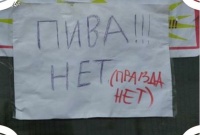 ПИВА!!!
НЕТ (ПРАВДА
НЕТ)